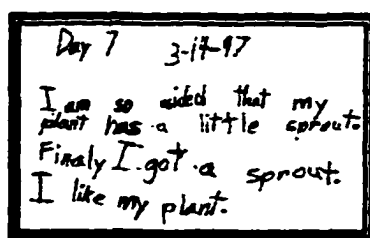 Day 7 3-14-97
I am so exided that my
plant has a little sprout.
Finaly I got a sprout.
I like my plant.